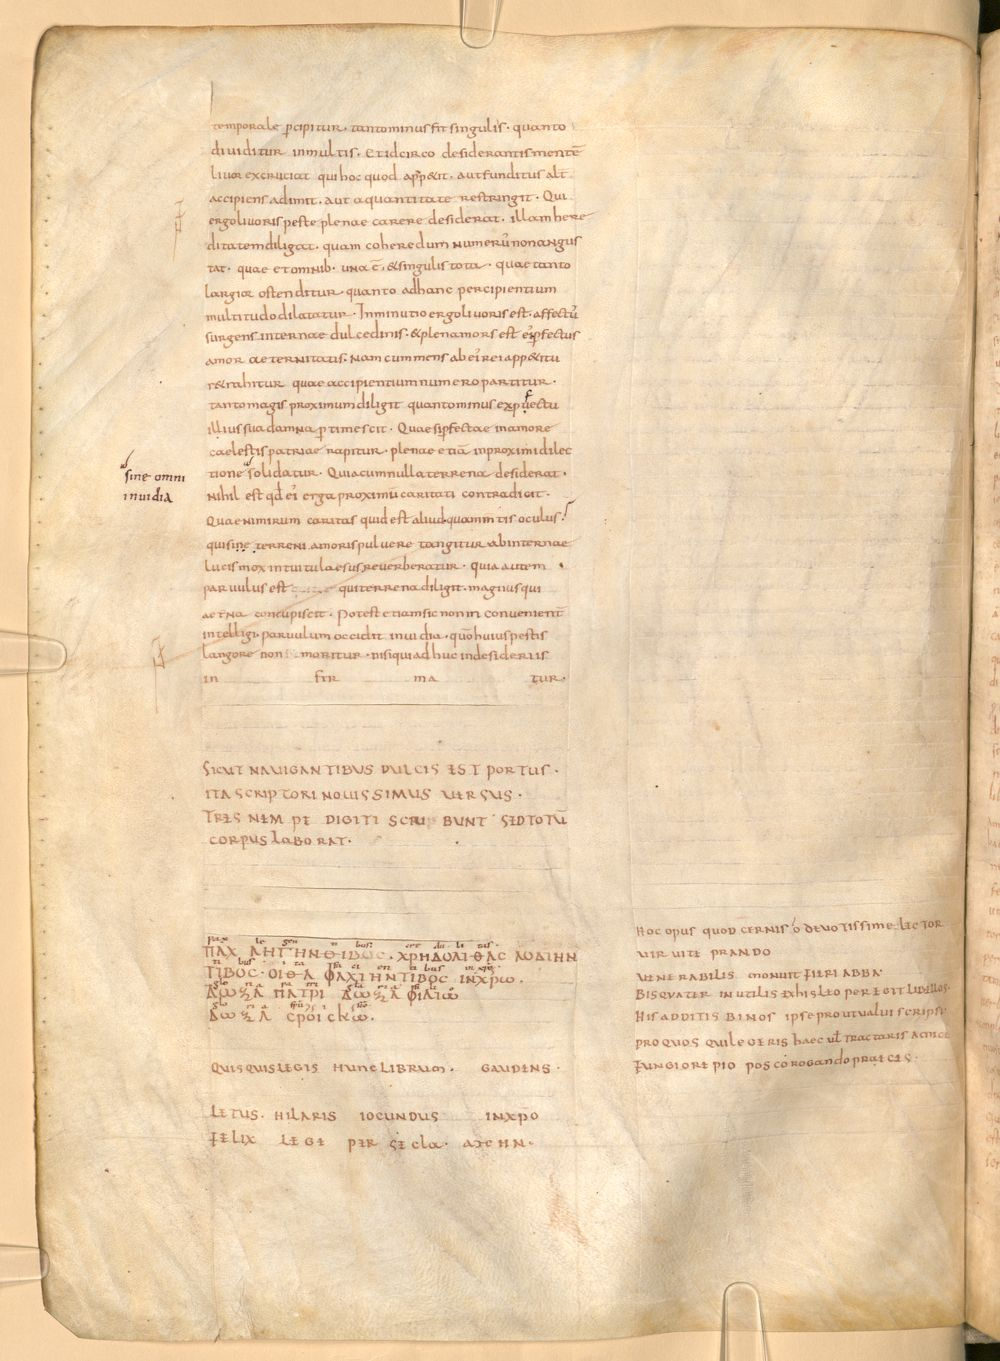 temporale pcipitur. tantominus fit singulis. quanto
diuiditur inmultis. Etidcirco desiderantis mentē
liuor excruciat qui hoc quod appetit. aut funditus alt
accipiens adimit. aut aquantitate restringit. Qui
ergo liuoris peste plenae carere desiderat. illam here
ditatem diligat. quam coheredum numerū non angus
tat. quae et omnib. una ē, & singulis tota. quae tanto
largior ostenditur. quanto adhanc percipientium
multitudo dilatatur. Inminutio ergo liuoris est. affectū
surgens internae dulcedinis. & plena mors est ei pfectus
amor aeternitatis. Nam cum mens ab ei rei appetitu
retrahitur quae accipientium numero partitur.
tanto magis proximum diligit quanto minus ex puectu
illius sua damna ptimescit. Quae si pfectae inamore
caelestis patriae rapitur. plenae etiā inproximi dilec
tione solidatur. Quia cum nulla terrena desiderat.
sine omni
inuidia
nihil est qd ei erga proximū caritati contradicit.
Quae nimirum caritas quid est aliud quam mentis oculus.
qui sine terreni amoris puluere tangitur ab internae
lucis mox intuitu laesus reuerberatur. quia autem
paruulus est qui terrena diligit. magnus qui
aetna concupiscit. Potest etiam sic non inconvenient̄
intelligi. paruulum occidit inuidia. quō huius pestis
langore non moritur. nisi qui adhuc in desideriis
in fir ma tur.
SICUT NAUIGANTIBUS DULCIS EST PORTUS.
ITA SCRIPTORI NOUISSIMUS UERSUS.
TRES NEM PE DIGITI SCRI BUNT SED TOTŪ
CORPUS LABORAT.
pax le gen ti bus. cre du li tas.
ΠΑΧ ΛΗΓΗΝΘΙΒΟC. ΧΡΗΔΟΛΙΘΑC ΑΟΔΙΗΝ
ti bus. ui ta fa ci en ti bus in xpo
ΤΙΒΟC. ΟΙΘΑ ΦΑΧΙΗΝΤΙΒΟC ΙΝΧΡω.
glo ri a pa tri glo ri a fi li o
ΠΑΤΡΙ ΦΙΛΙω
glo ri a
CΡΟΙ CΚω.
QUISQUIS LEGIS HUNC LIBRUM. GAUDENS.
LETUS. HILARIS IOCUNDUS INXPO
FELIX LEGE PER SECLA. AMEHN.
HOC OPUS QUOD CERNIS O DEUOTISSIME LECTOR
UIR UITE PRANDO
UENERABILIS MONUIT FIERI ABBA
BISQUATER IN UTILIS EXHIS LEO PEREGIT LIBELLOS.
HIS ADDITIS BINOS IPSE PROUT UALUI SCRIPSI
PRO QUOS QUI LEGERIS HAEC UL TRACTARIS AMICE
FUNGIORE PIO POSCO ROGANDO PRAECES.